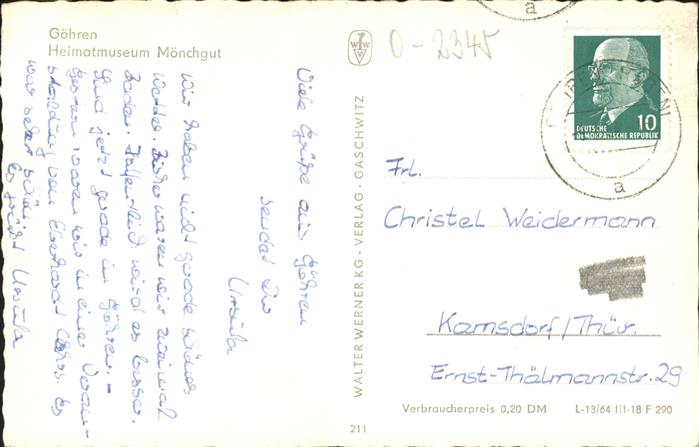 Göhren
Heimatmuseum Mönchgut
WVW
0-2345
Viele Grüße aus Göhren
sendet Dir
Ursula
Wir haben nicht gerade schönes
Wetter. Bisher waren wir zweimal
baden. Hoffentlich wird es besser.
Sind jetzt gerade in Göhren. -
Gestern waren wir in einer Veran-
staltung von Eberhard Cohrs. Es
war sehr schön.
Es grüßt Ursula
WALTER WERNER KG · VERLAG · GASCHWITZ
211
DEUTSCHE
DEMOKRATISCHE REPUBLIK
10
a
a
Frl.
Christel Weidermann
Kamsdorf/Thür.
Ernst-Thälmannstr. 29
Verbraucherpreis 0,20 DM L-13/64 III-18 F 290